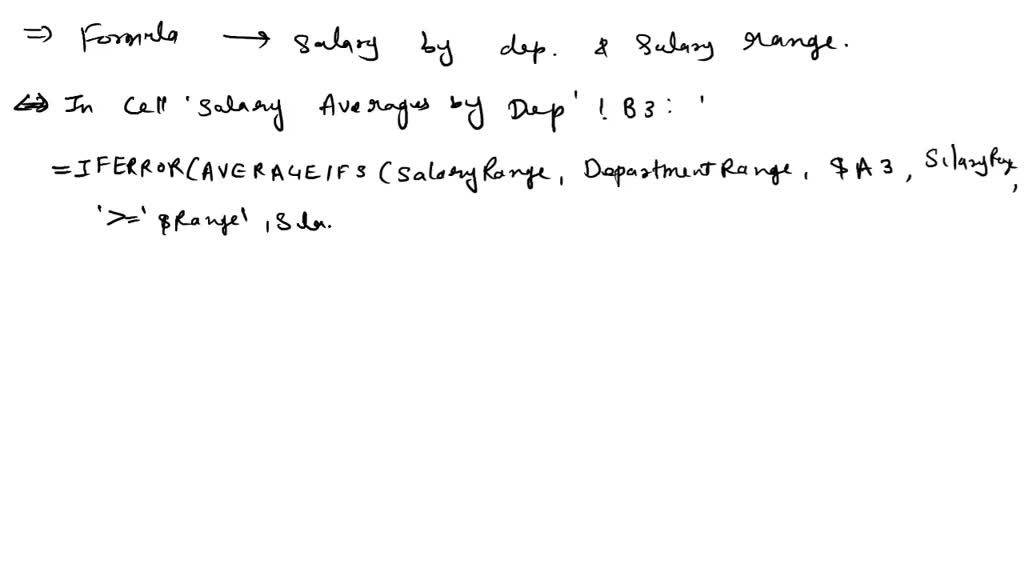 ⇒ Formula → Salary by dep. & Salary range.
⇔ In Cell 'Salary Averages by Dep' ! B3 : '
=IFERROR(AVERAGEIFS (SalaryRange, DepartmentRange, $A3,
'>=' &Range', Sla.